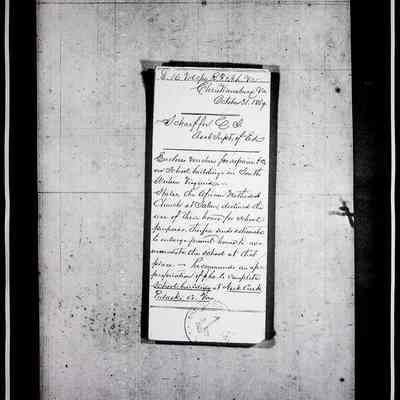 Christiansburg Va
October 31. 1869.
Schaeffer C. S.
Asst Supt. of Ed.
Encloses vouchers for repairs &c
on School buildings in South
Western Virginia —
States the African Methodist
Church at Salem, declined the
use of their house for school
purposes, therefore finds it desirable
to enlarge present house to acc
ommodate the school at that
place — Recommends an ap-
propriation of to complete
School building at
Pulaski Co. Va